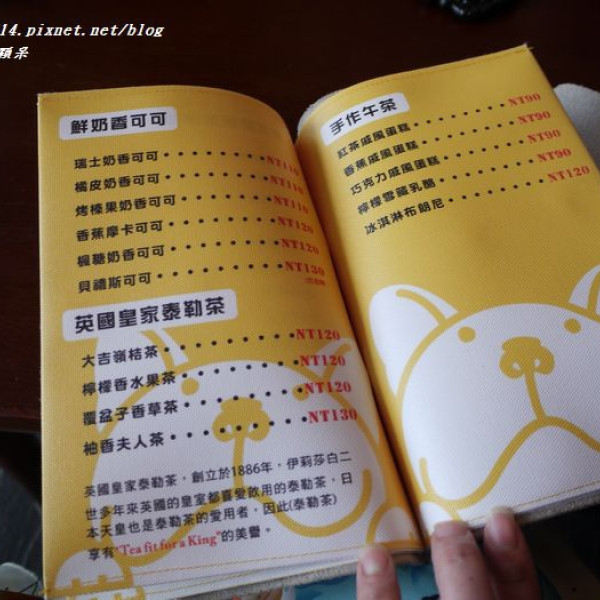 14.pixnet.net/blog
鮮奶香可可
瑞士奶香可可・・・・・・・・NT110
橘皮奶香可可・・・・・・・・NT110
烤榛果奶香可可・・・・・・・NT110
香蕉摩卡可可・・・・・・・・NT120
楓糖奶香可可・・・・・・・・NT120
貝禮斯可可・・・・・・・・・NT130
英國皇家泰勒茶
大吉嶺桔茶・・・・・・・・・NT120
檸檬香水果茶・・・・・・・・NT120
覆盆子香草茶・・・・・・・・NT120
柚香夫人茶・・・・・・・・・NT130
英國皇家泰勒茶，創立於1886年，伊莉莎白二
世多年來英國的皇室都喜愛飲用的泰勒茶，日
本天皇也是泰勒茶的愛用者，因此(泰勒茶)
享有"Tea fit for a King"的美譽。
手作午茶
紅茶戚風蛋糕・・・・・・・・NT90
香蕉戚風蛋糕・・・・・・・・NT90
巧克力戚風蛋糕・・・・・・・NT90
檸檬雪藏乳酪・・・・・・・・NT90
冰淇淋布朗尼・・・・・・・・NT120